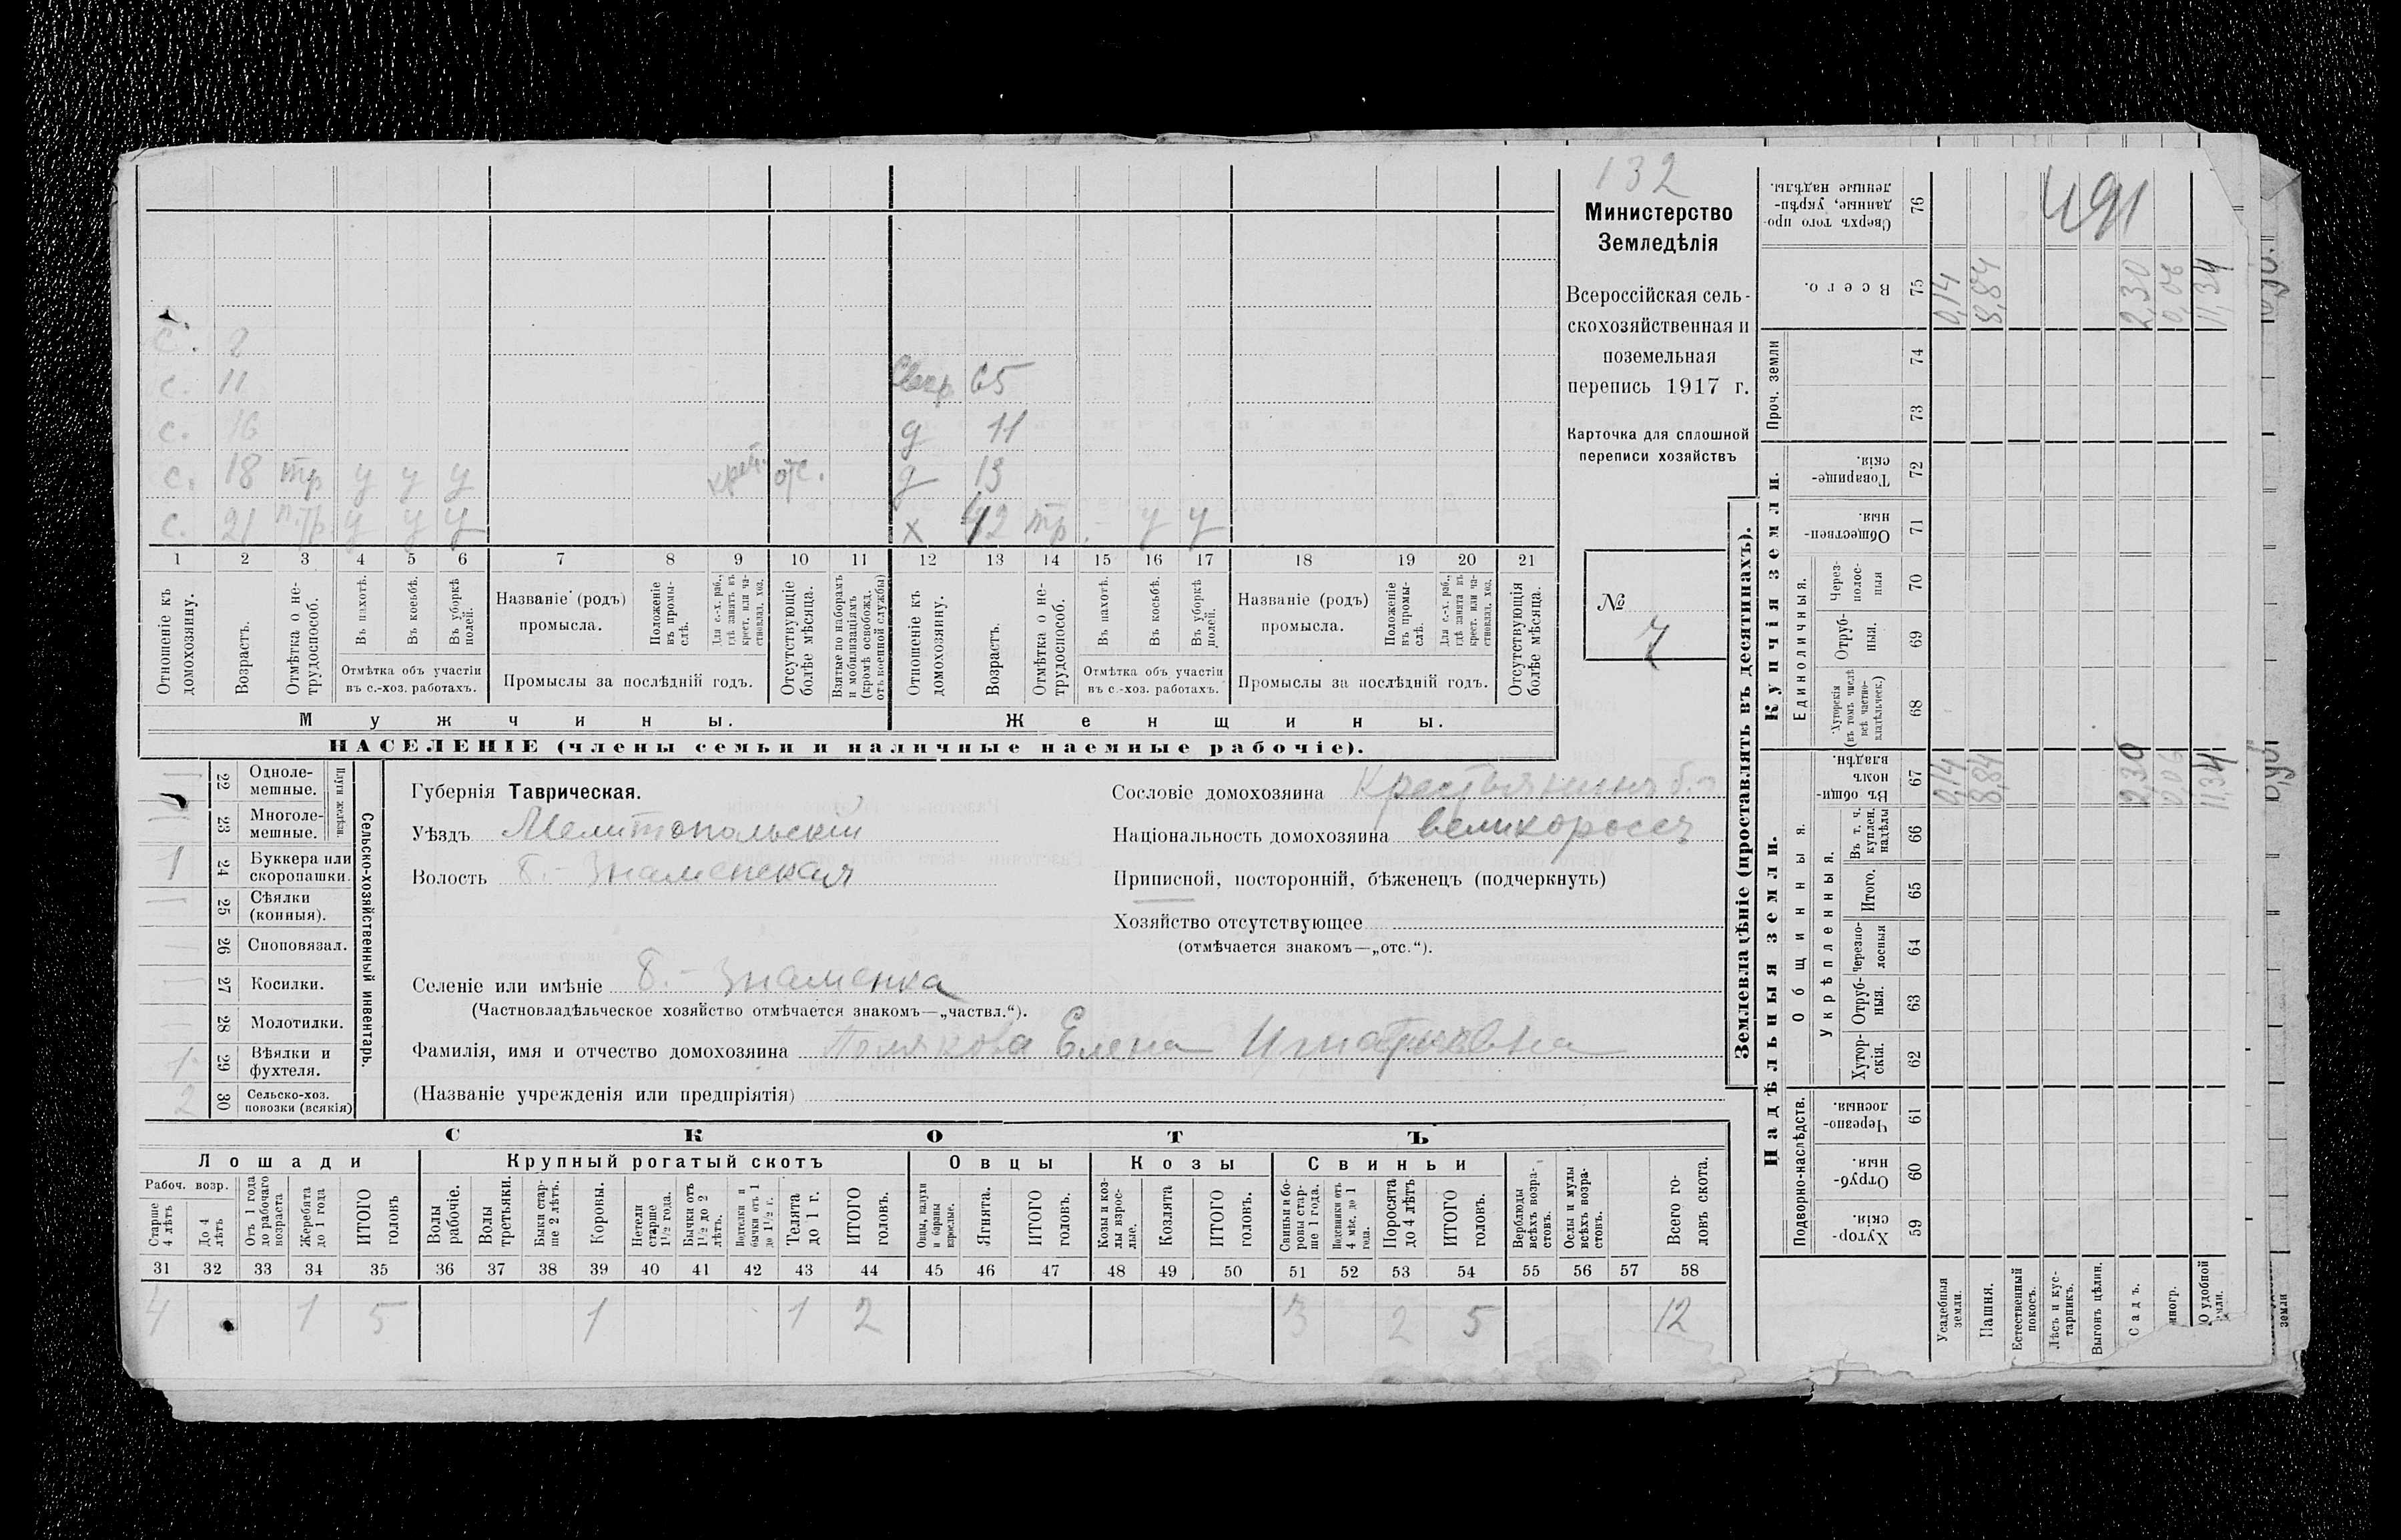 132
Министерство
Земледѣлія
Всероссійская сель-
скохозяйственная и
поземельная
перепись 1917 г.
Карточка для сплошной
переписи хозяйствъ
№
7
с. 8
с. 11
с. 16
с. 18 тр у у у отс.
с. 21 н.тр. у у у
65
д 11
д 13
х 42 тр. - у у
1 2 3 4 5 6 7 8 9 10 11 12 13 14 15 16 17 18 19 20 21
Отношеніе къ домохозяину.
Возрастъ.
Отмѣтка о не-трудоспособ.
Въ пахотѣ.
Въ косьбѣ.
Въ уборкѣ полей.
Отмѣтка объ участіи въ с.-хоз. работахъ.
Названіе (родъ) промысла.
Положеніе въ промы-слѣ.
Для с.-х. раб., гдѣ занятъ въ крест. или ча-стновлад. хоз.
Промыслы за послѣдній годъ.
Отсутствующіе болѣе мѣсяца.
Взятые по наборамъ и мобилизаціямъ (кромѣ освобожд. отъ военной службы)
Отношеніе къ домохозяину.
Возрастъ.
Отмѣтка о не-трудоспособ.
Въ пахотѣ.
Въ косьбѣ.
Въ уборкѣ полей.
Отмѣтка объ участіи въ с.-хоз. работахъ.
Названіе (родъ) промысла.
Положеніе въ промы-слѣ.
Для с.-х. раб., гдѣ занята въ крест. или ча-стновлад. хоз.
Промыслы за послѣдній годъ.
Отсутствующія болѣе мѣсяца.
Мужчины.
Женщины.
НАСЕЛЕНІЕ (члены семьи и наличные наемные рабочіе).
Сельско-хозяйственный инвентарь.
Плуги желѣзн.
22 Одноле-мешные.
23 Многоле-мешные.
1 24 Буккера или скоропашки.
25 Сѣялки (конныя).
26 Сноповязал.
27 Косилки.
28 Молотилки.
1 29 Вѣялки и фухтеля.
2 30 Сельско-хоз. повозки (всякія)
Губернія Таврическая.
Уѣздъ Мелитопольскій
Волость Б.-Знаменская
Сословіе домохозяина Крестьянинъ б.п
Національность домохозяина великороссъ
Приписной, посторонній, бѣженецъ (подчеркнуть)
Хозяйство отсутствующее
(отмѣчается знакомъ—„отс.“).
Селеніе или имѣніе Б.-Знаменка
(Частновладѣльческое хозяйство отмѣчается знакомъ—„частвл.“).
Фамилія, имя и отчество домохозяина Полякова Елена Игнатьевна
(Названіе учрежденія или предпріятія)
СКОТЪ
Лошади
Крупный рогатый скотъ
Овцы
Козы
Свиньи
Рабоч. возр.
Старше 4 лѣтъ
До 4 лѣтъ
Отъ 1 года до рабочаго возраста
Жеребята до 1 года
ИТОГО головъ
Волы рабочіе.
Волы третьяки.
Быки стар-ше 2 лѣтъ.
Коровы.
Нетели старше 1½ года.
Бычки отъ 1½ до 2 лѣтъ.
Подтелки и бычки отъ 1 до 1½ г.
Телята до 1 г.
ИТОГО головъ.
Овцы, валухи и бараны взрослые.
Ягнята.
ИТОГО головъ.
Козы и коз-лы взрос-лые.
Козлята
ИТОГО головъ.
Свиньи и бо-ровы стар-ше 1 года.
Подсвинки отъ 4 мѣс. до 1 года.
Поросята до 4 лѣтъ
ИТОГО головъ.
Верблюды всѣхъ возра-стовъ.
Ослы и мулы всѣхъ возра-стовъ.
Всего го-ловъ скота.
31 32 33 34 35 36 37 38 39 40 41 42 43 44 45 46 47 48 49 50 51 52 53 54 55 56 57 58
4 1 5 1 1 2 3 2 5 12
Землевладѣніе (проставлять въ десятинахъ).
Надѣльныя земли.
Купчія земли.
Проч. земли
Подворно-наслѣдств.
Общинныя.
Укрѣпленныя.
Единоличныя.
Сверхъ того про-данные, укрѣп-ленные надѣлы. 76
Всего. 75
74
73
Товарище-скія. 72
Обществен-ныя. 71
Через-полос-ныя 70
Отруб-ныя. 69
Хуторскія (въ томъ числѣ всѣ частно-владѣльческ.) 68
Въ общи-номъ владѣн. 67
Въ т. ч. куплен. надѣлы 66
Итого. 65
Черезпо-лосныя 64
Отруб-ныя. 63
Хутор-скія. 62
Черезпо-лосныя. 61
Отруб-ныя. 60
Хутор-скія. 59
491
0,14 8,84 2,30 0,06 11,34
0,14 8,84 2,30 0,06 11,34
Усадебныя земли.
Пашня.
Естественный покосъ.
Лѣсъ и кус-тарникъ.
Выгонъ цѣлин.
Садъ.
иногр.
О удобной земли.
земли